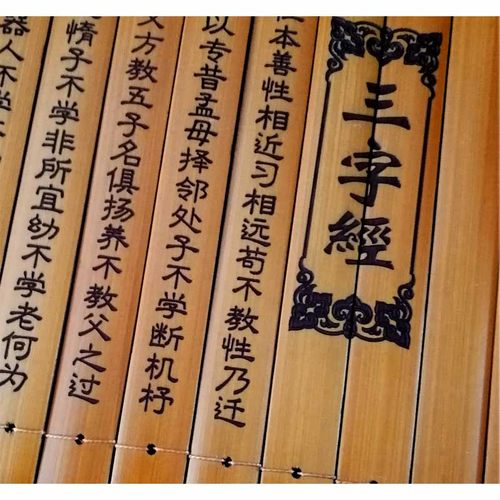 三字經
性本善性相近习相远苟不教性乃迁
以专昔孟母择邻处子不学断机杼
义方教五子名俱扬养不教父之过
惰子不学非所宜幼不学老何为
器人不学